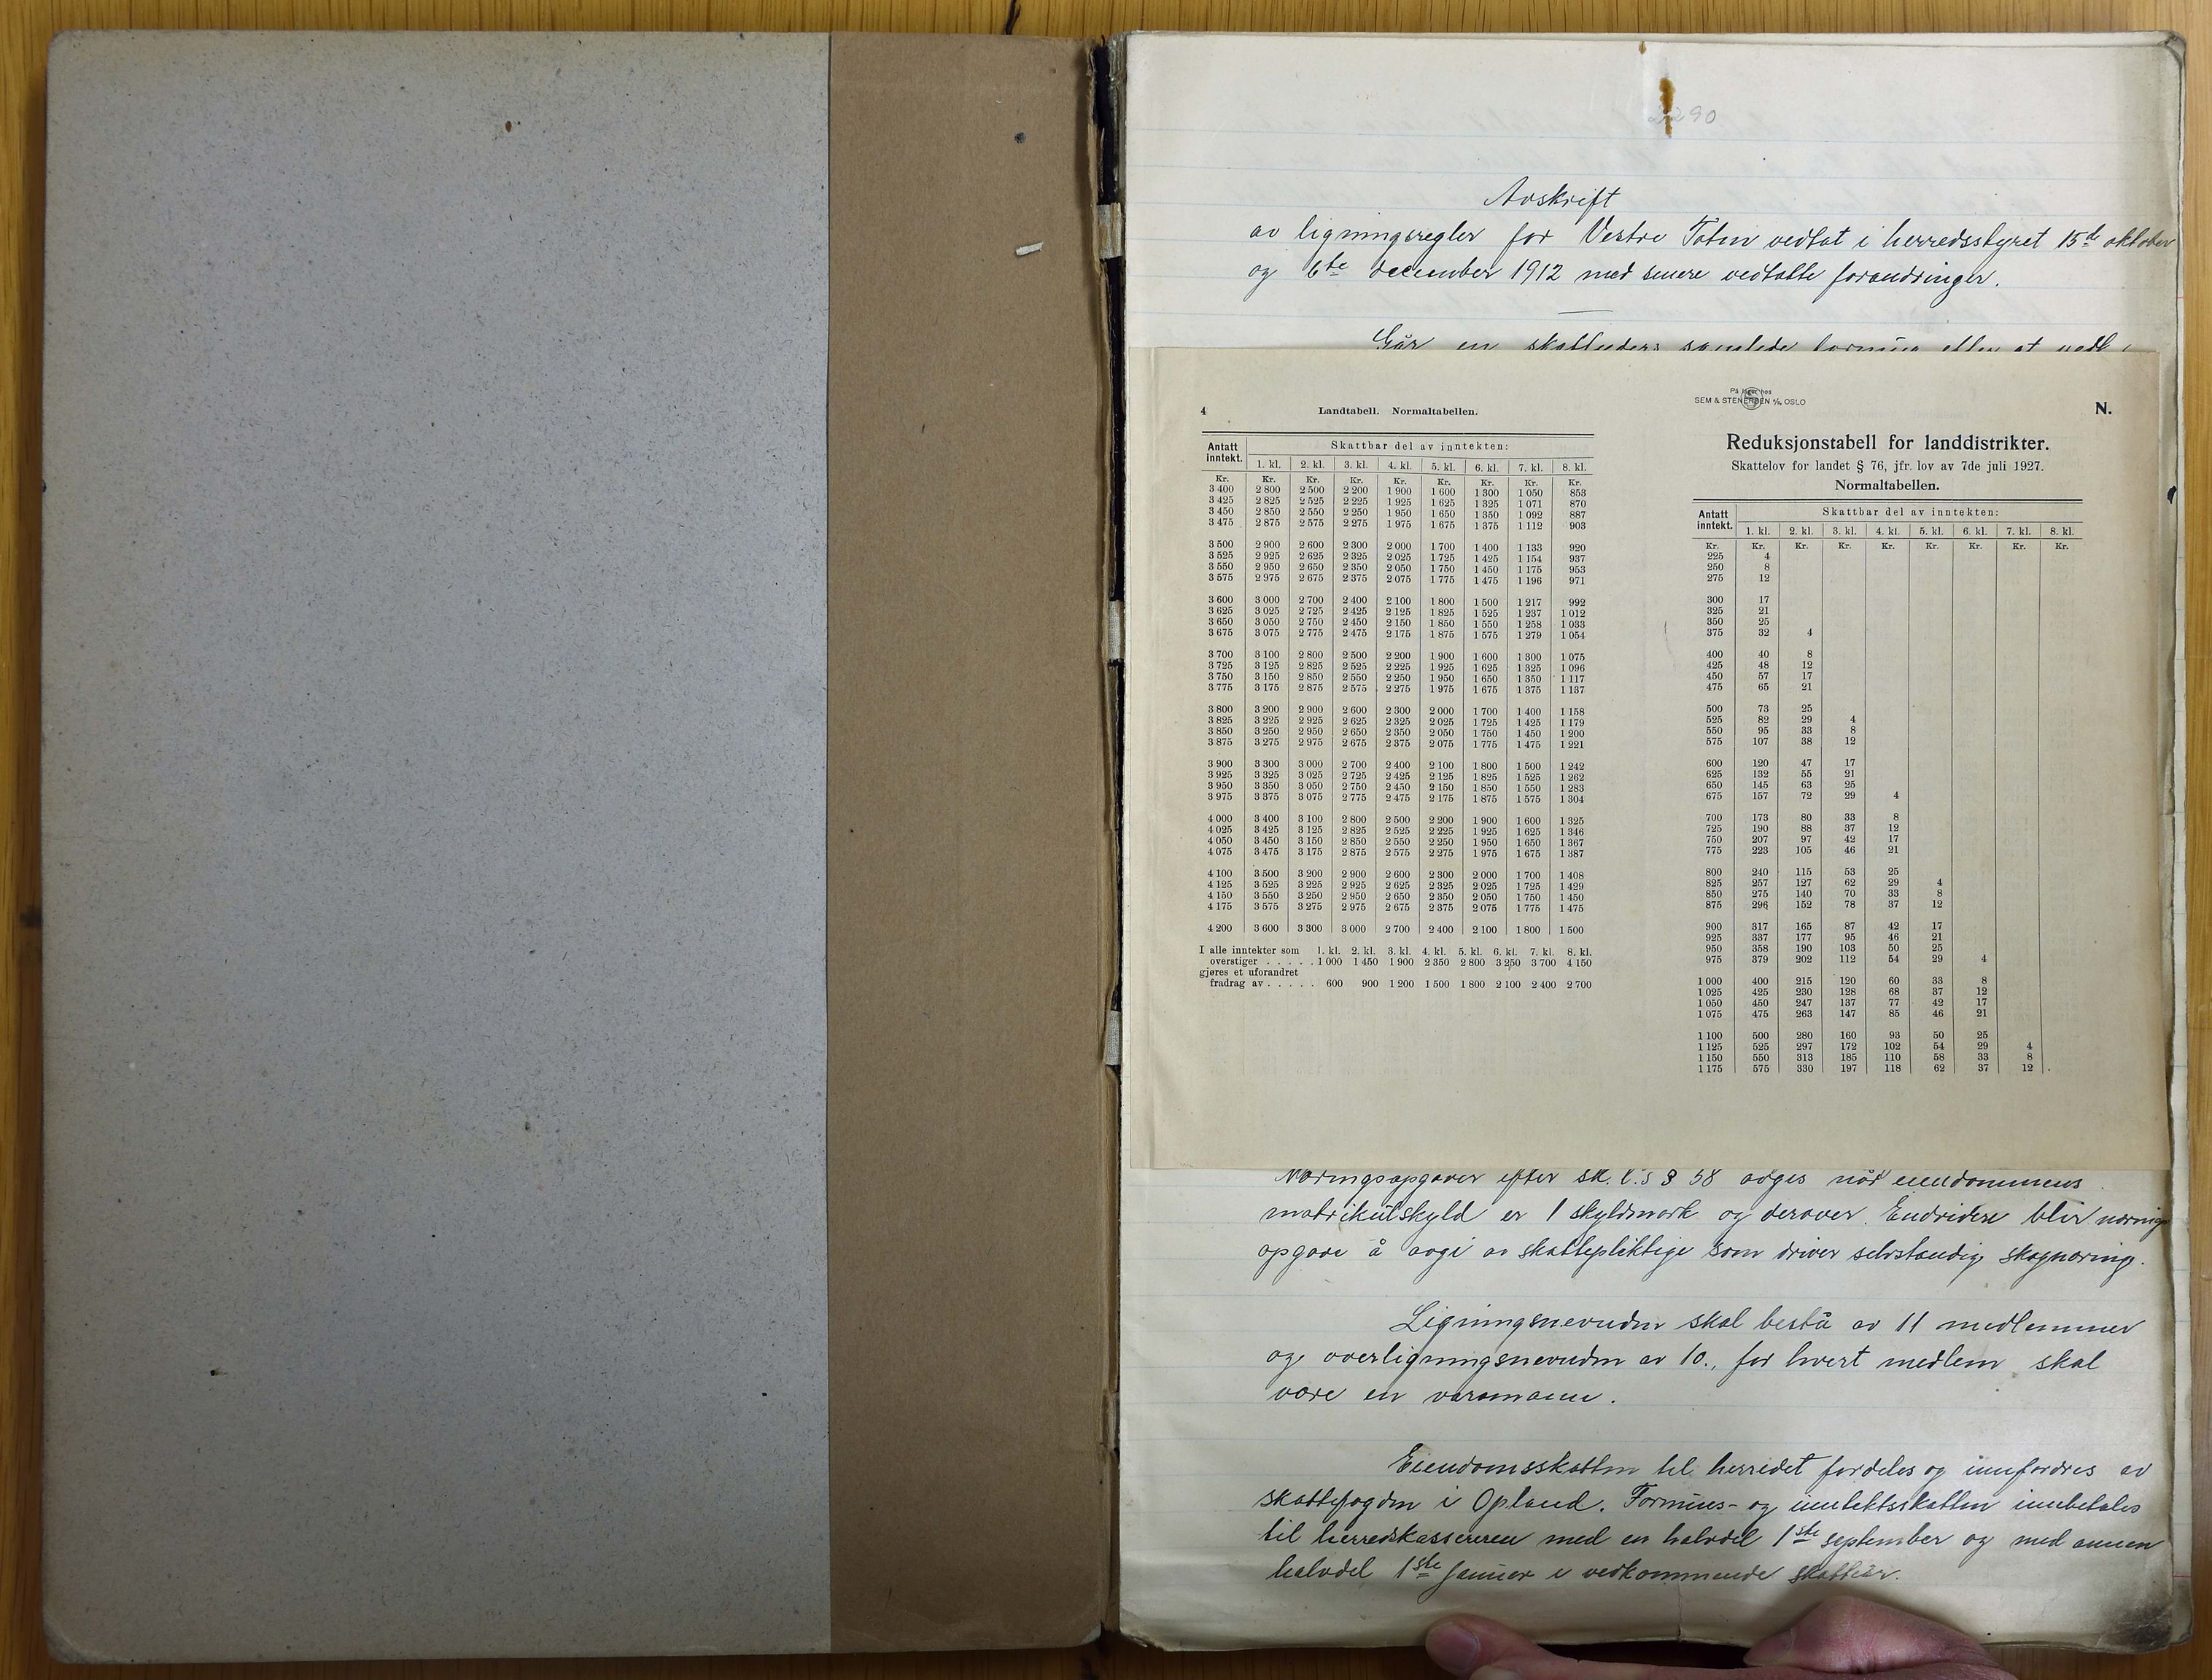 2290
Avskrift
av ligningsregler for Vestre Toten vedtat i herredsstyret 15de oktober
og 6te december 1912 med senere vedtatte forandringer.
Går en skatteyders samlede formue efter at
4 Landtabell. Normaltabellen.
Antatt inntekt. Skattbar del av inntekten:
1. kl. 2. kl. 3. kl. 4. kl. 5. kl. 6. kl. 7. kl. 8. kl.
Kr. Kr. Kr. Kr. Kr. Kr. Kr. Kr. Kr.
3 400 2 800 2 500 2 200 1 900 1 600 1 300 1 050 853
3 425 2 825 2 525 2 225 1 925 1 625 1 325 1 071 870
3 450 2 850 2 550 2 250 1 950 1 650 1 350 1 092 887
3 475 2 875 2 575 2 275 1 975 1 675 1 375 1 112 903
3 500 2 900 2 600 2 300 2 000 1 700 1 400 1 133 920
3 525 2 925 2 625 2 325 2 025 1 725 1 425 1 154 937
3 550 2 950 2 650 2 350 2 050 1 750 1 450 1 175 953
3 575 2 975 2 675 2 375 2 075 1 775 1 475 1 196 971
3 600 3 000 2 700 2 400 2 100 1 800 1 500 1 217 992
3 625 3 025 2 725 2 425 2 125 1 825 1 525 1 237 1 012
3 650 3 050 2 750 2 450 2 150 1 850 1 550 1 258 1 033
3 675 3 075 2 775 2 475 2 175 1 875 1 575 1 279 1 054
3 700 3 100 2 800 2 500 2 200 1 900 1 600 1 300 1 075
3 725 3 125 2 825 2 525 2 225 1 925 1 625 1 325 1 096
3 750 3 150 2 850 2 550 2 250 1 950 1 650 1 350 1 117
3 775 3 175 2 875 2 575 2 275 1 975 1 675 1 375 1 137
3 800 3 200 2 900 2 600 2 300 2 000 1 700 1 400 1 158
3 825 3 225 2 925 2 625 2 325 2 025 1 725 1 425 1 179
3 850 3 250 2 950 2 650 2 350 2 050 1 750 1 450 1 200
3 875 3 275 2 975 2 675 2 375 2 075 1 775 1 475 1 221
3 900 3 300 3 000 2 700 2 400 2 100 1 800 1 500 1 242
3 925 3 325 3 025 2 725 2 425 2 125 1 825 1 525 1 262
3 950 3 350 3 050 2 750 2 450 2 150 1 850 1 550 1 283
3 975 3 375 3 075 2 775 2 475 2 175 1 875 1 575 1 304
4 000 3 400 3 100 2 800 2 500 2 200 1 900 1 600 1 325
4 025 3 425 3 125 2 825 2 525 2 225 1 925 1 625 1 346
4 050 3 450 3 150 2 850 2 550 2 250 1 950 1 650 1 367
4 075 3 475 3 175 2 875 2 575 2 275 1 975 1 675 1 387
4 100 3 500 3 200 2 900 2 600 2 300 2 000 1 700 1 408
4 125 3 525 3 225 2 925 2 625 2 325 2 025 1 725 1 429
4 150 3 550 3 250 2 950 2 650 2 350 2 050 1 750 1 450
4 175 3 575 3 275 2 975 2 675 2 375 2 075 1 775 1 475
4 200 3 600 3 300 3 000 2 700 2 400 2 100 1 800 1 500
I alle inntekter som 1. kl. 2. kl. 3. kl. 4. kl. 5. kl. 6. kl. 7. kl. 8. kl.
overstiger . . . . . 1 000 1 450 1 900 2 350 2 800 3 250 3 700 4 150
gjøres et uforandret
fradrag av . . . . . 600 900 1 200 1 500 1 800 2 100 2 400 2 700
På lager hos
SEM & STENERSEN A/S, OSLO
N.
Reduksjonstabell for landdistrikter.
Skattelov for landet § 76, jfr. lov av 7de juli 1927.
Normaltabellen.
Antatt inntekt. Skattbar del av inntekten:
1. kl. 2. kl. 3. kl. 4. kl. 5. kl. 6. kl. 7. kl. 8. kl.
Kr. Kr. Kr. Kr. Kr. Kr. Kr. Kr. Kr.
225 4
250 8
275 12
300 17
325 21
350 25
375 32 4
400 40 8
425 48 12
450 57 17
475 65 21
500 73 25
525 82 29 4
550 95 33 8
575 107 38 12
600 120 47 17
625 132 55 21
650 145 63 25
675 157 72 29 4
700 173 80 33 8
725 190 88 37 12
750 207 97 42 17
775 223 105 46 21
800 240 115 53 25
825 257 127 62 29 4
850 275 140 70 33 8
875 296 152 78 37 12
900 317 165 87 42 17
925 337 177 95 46 21
950 358 190 103 50 25
975 379 202 112 54 29 4
1 000 400 215 120 60 33 8
1 025 425 230 128 68 37 12
1 050 450 247 137 77 42 17
1 075 475 263 147 85 46 21
1 100 500 280 160 93 50 25
1 125 525 297 172 102 54 29 4
1 150 550 313 185 110 58 33 8
1 175 575 330 197 118 62 37 12
Næringsopgaver efter sk. l.s § 58 avges når eiendommens
matrikulskyld er 1 skyldmark og derover. Endvidere blir nærings
opgave å avgi av skattepliktige som driver selvstændig skognæring.
Ligningsnevnden skal bestå av 11 medlemmer
og overligningsnevnden av 10., for hvert medlem skal
være en varamann.
Eiendomsskatten til herredet fordeles og innfordres av
skattefogden i Opland. Formues- og inntektsskatten innbetales
til herredskassereren med en halvdel 1ste september og med annen
halvdel 1ste januar i vedkommende skatteår.